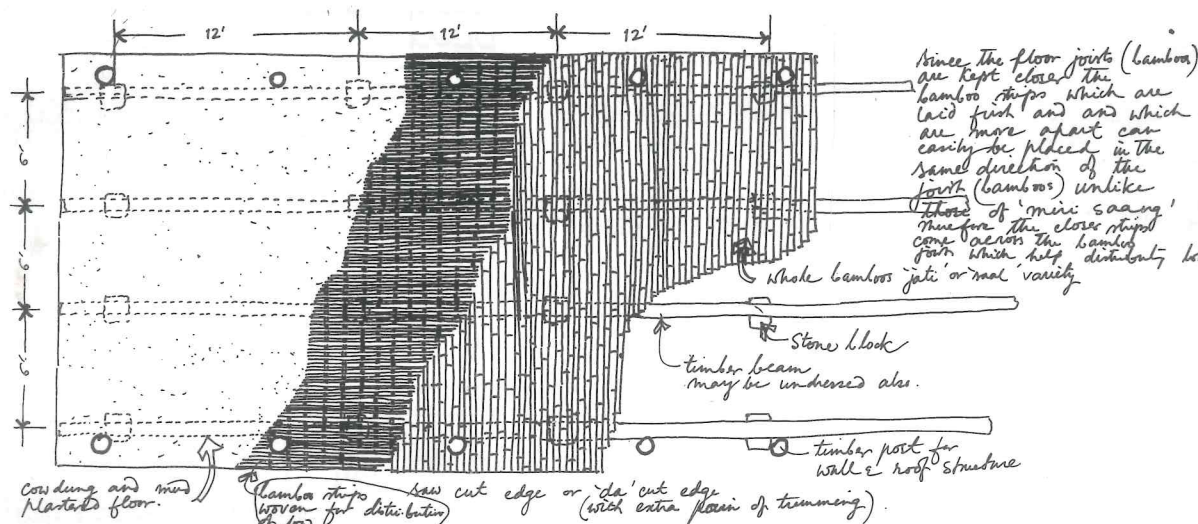 12' 12' 12'
6'
6'
6'
since the floor joists (bamboos)
are kept closer the
bamboo strips which are
laid first and and which
are more apart can
easily be placed in the
same direction of the
joist (bamboos) unlike
those of 'mini saang'
the closer strips
come across the bamboo
joist which help
whole bamboos 'jati' or variety
stone block
timber beam
may be undressed also.
timber post for
wall & roof structure
cowdung and mud
plastered floor.
bamboo strips
woven for distribution
of
saw cut edge or 'da' cut edge
(with extra of trimming).